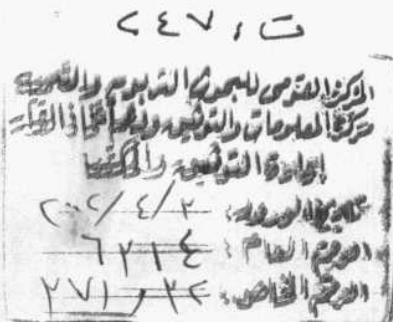 ت ، ٢٤٧
المركز القومى للبحوث التربوية والتنمية
مركز المعلومات والتوثيق ودعم اتخاذ القرار
إدارة التوثيق والمكتبات
تاريخ الورود : ٢٠٠٢/٤/٢
الرقم العام : ٦٢١٤
الرقم الخاص : ٣٧١٫٣٢